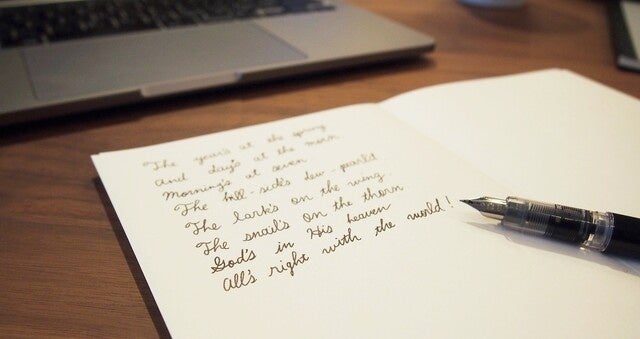 The year's at the spring
And day's at the morn
Morning's at seven
The hill-side's dew-pearld
The lark's on the wing
The snail's on the thorn
God's in His heaven
All's right with the world!